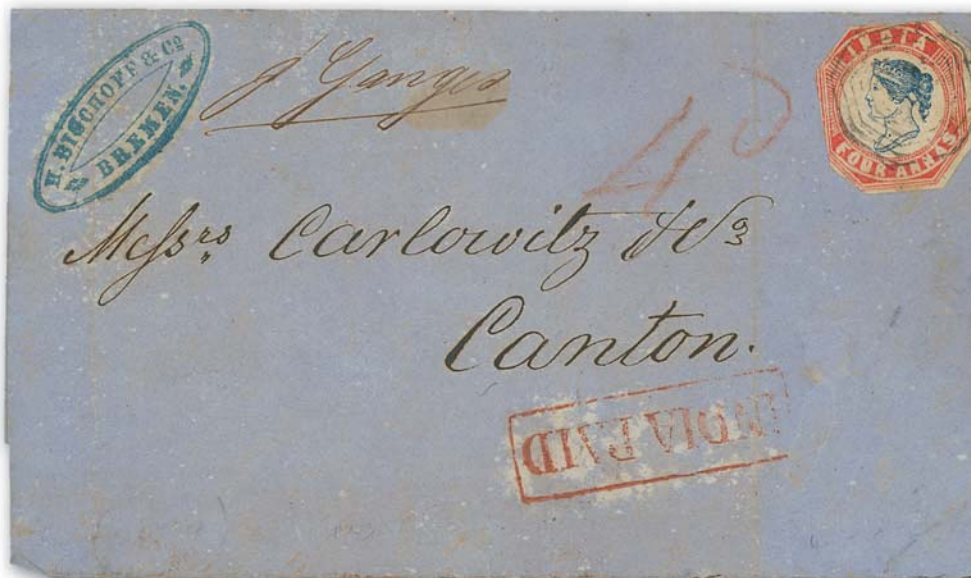 H. BISCHOFF & Cº
BREMEN.
p Ganges
4
INDIA
FOUR ANNAS
Messrs Carlowitz & Co
Canton.
INDIA PAID